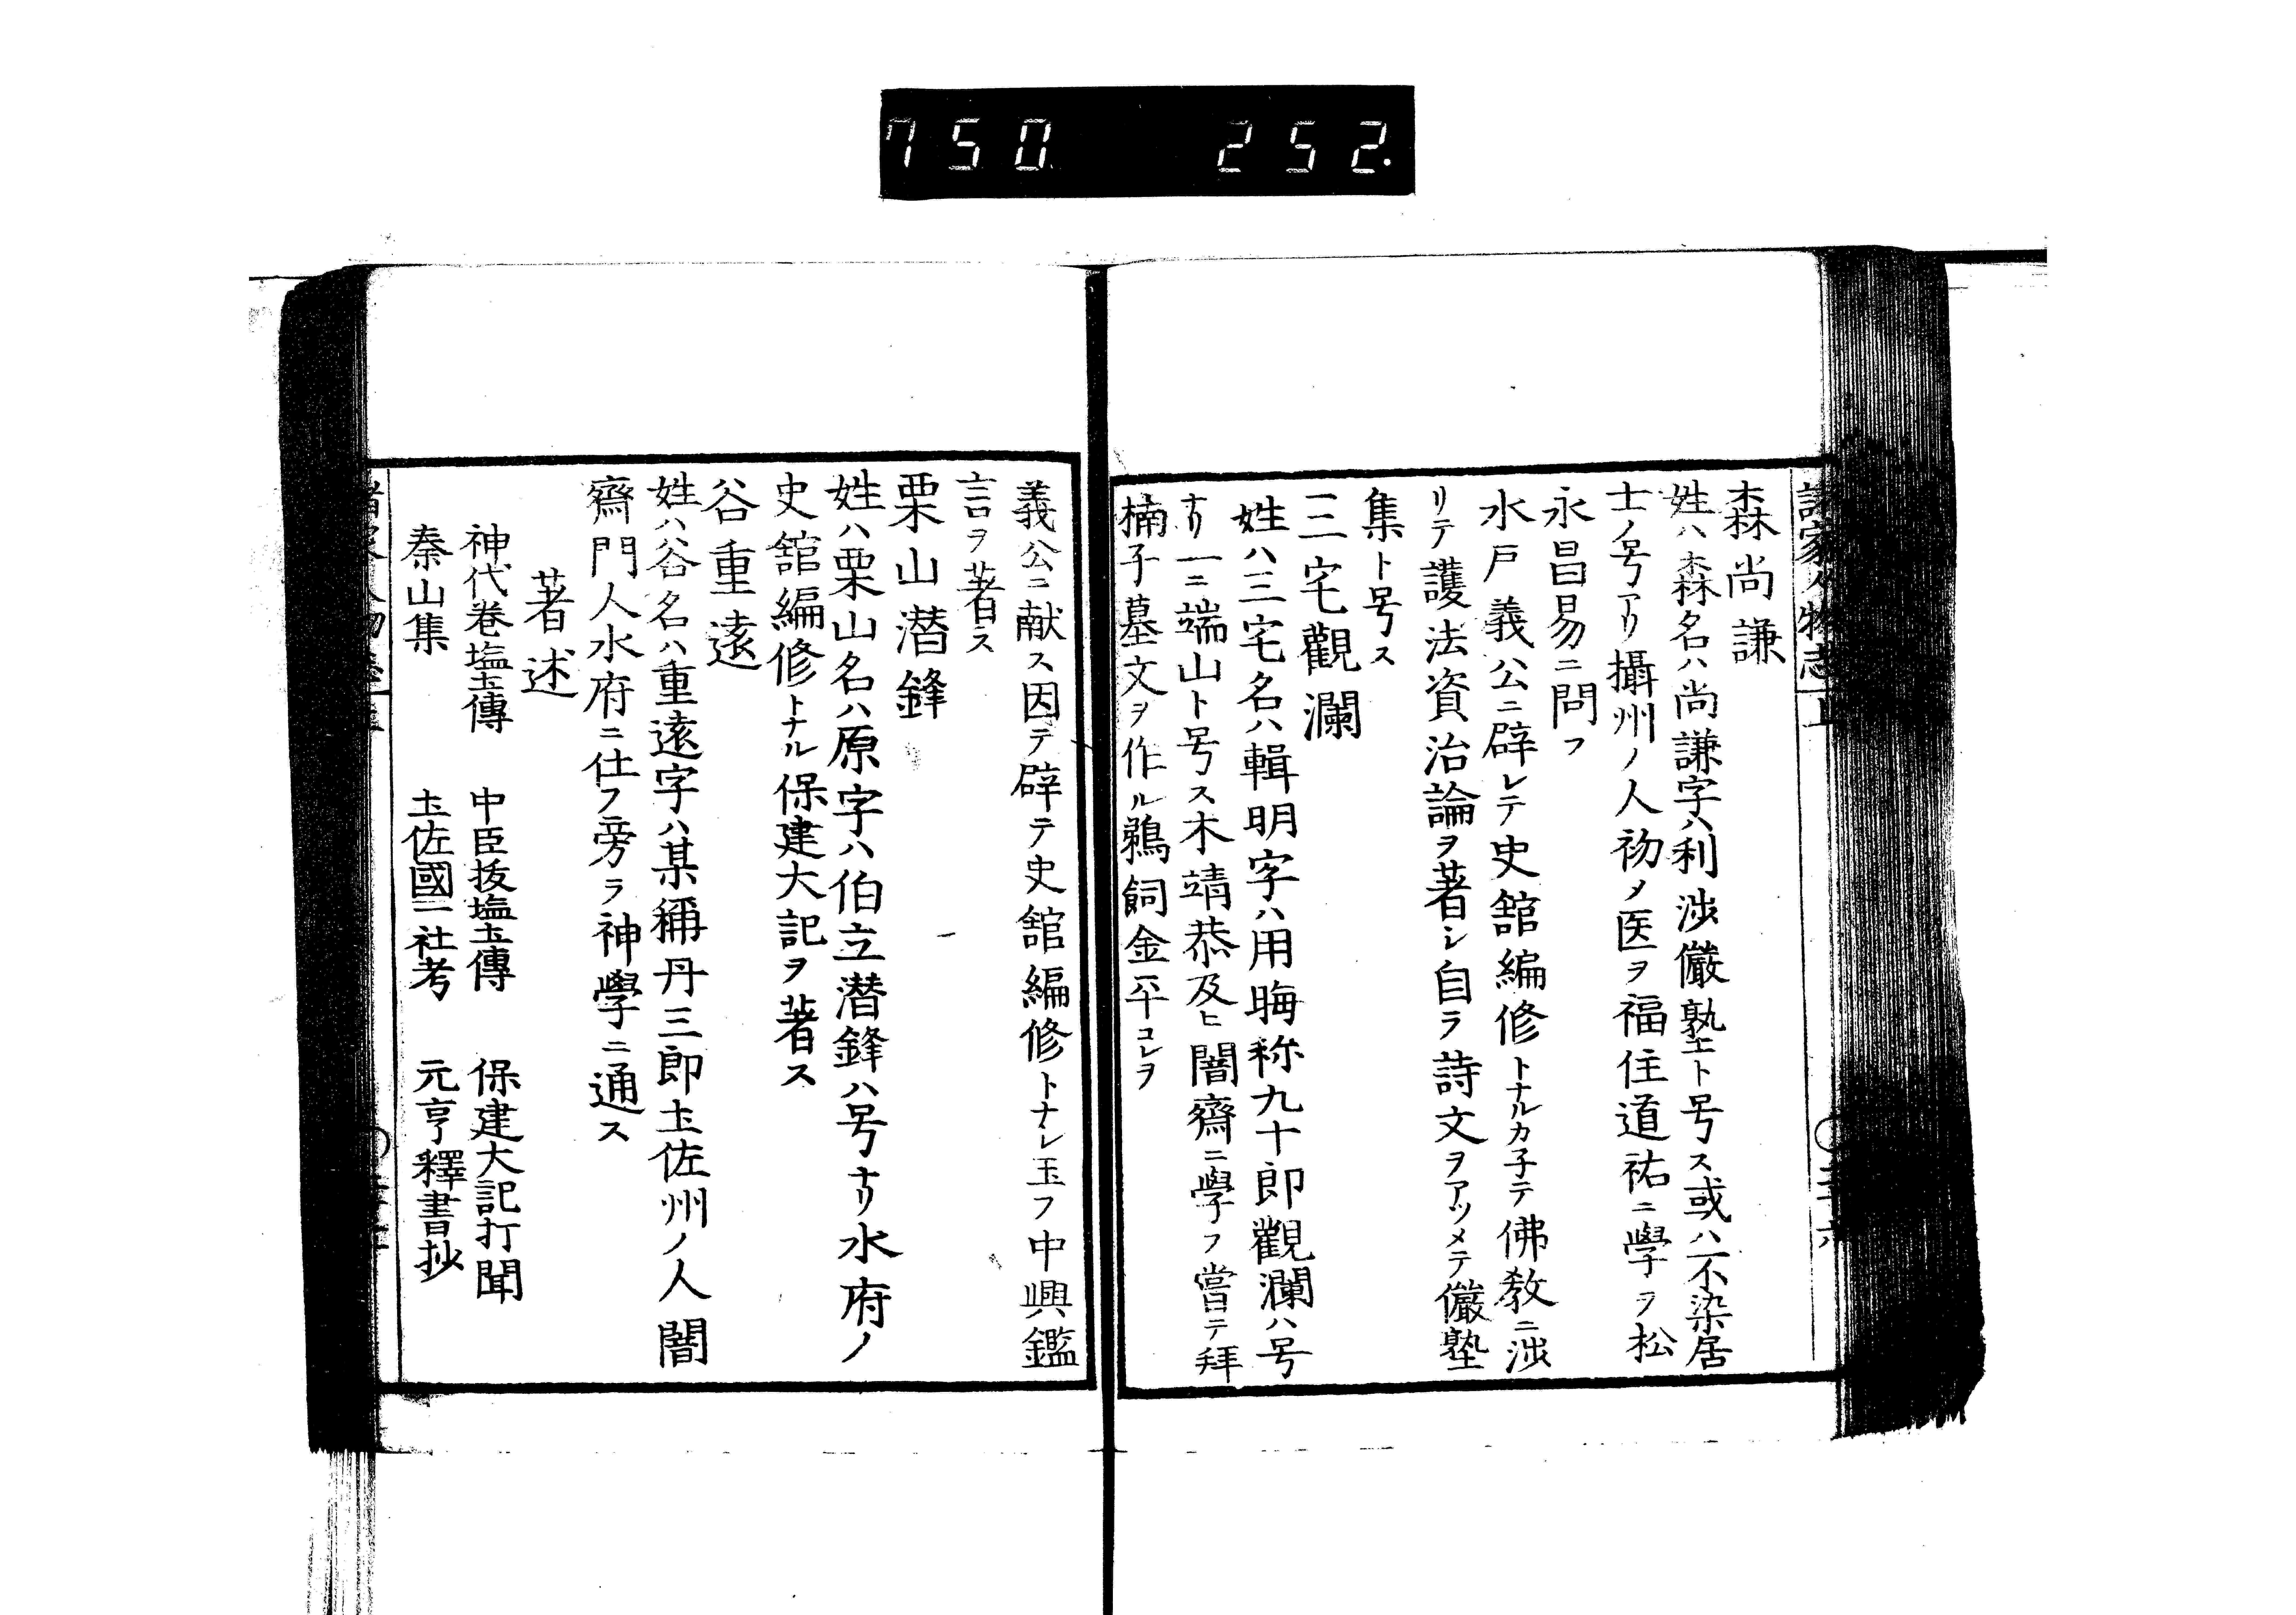 750 252.
諸家人物志 上
森尚謙
姓ハ森名ハ尚謙字ハ利渉儼塾ト号ス或ハ不染居
士ノ号アリ攝州ノ人初メ医ヲ福住道祐ニ學ヲ松
永昌易ニ問フ
水戸義公ニ辟レテ史舘編修トナルカ子テ佛教ニ渉
リテ護法資治論ヲ著シ自ラ詩文ヲアツメテ儼塾
集ト号ス
三宅觀瀾
姓ハ三宅名ハ輯明字ハ用晦称九十郎觀瀾ハ号
ナリ一ニ端山ト号ス木靖恭及ヒ闇齋ニ學フ嘗テ拜
楠子墓文ヲ作ル鵜飼金平コレヲ
義公ニ献ス因テ辟テ史舘編修トナレ玉フ中興鑑
言ヲ著ス
栗山潜鋒
姓ハ栗山名ハ原字ハ伯立潜鋒ハ号ナリ水府ノ
史舘編修トナル保建大記ヲ著ス
谷重遠
姓ハ谷名ハ重遠字ハ某稱丹三郎圡佐州ノ人闇
齋門人水府ニ仕フ旁ラ神學ニ通ス
著述
神代巻塩圡傳 中臣抜塩圡傳 保建大記打聞
秦山集 圡佐國二社考 元亨釋書抄